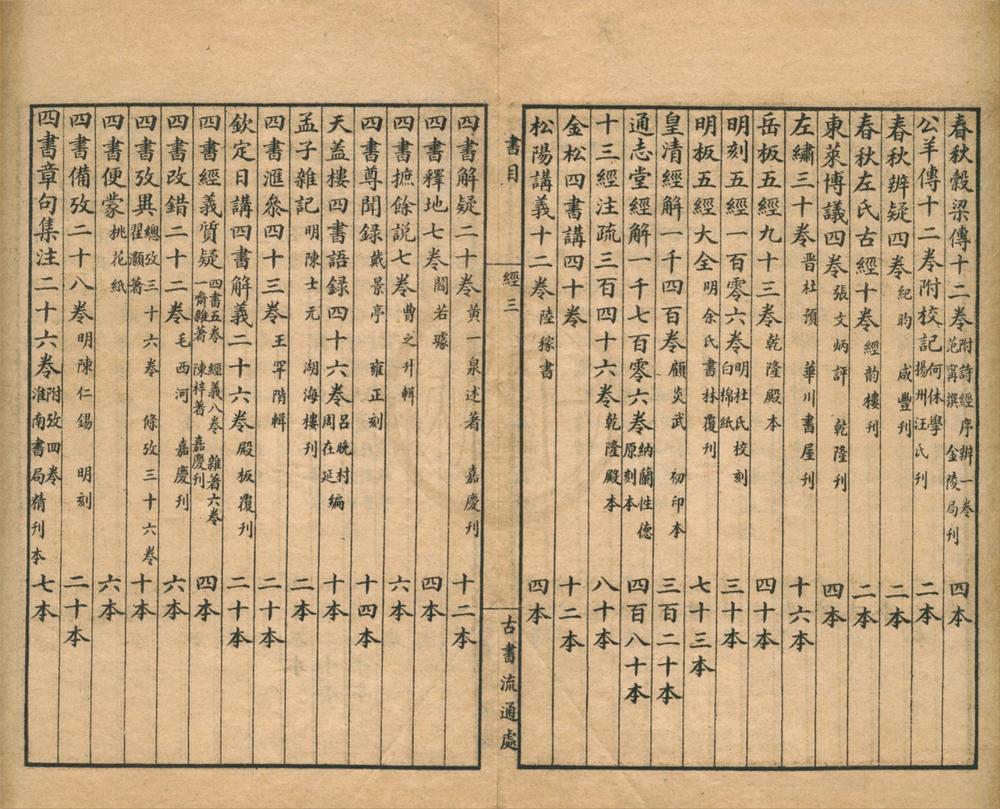 春秋穀梁傳十二卷附詩經序辨一卷 范甯撰 金陵局刊 四本
公羊傳十二卷附校記何休學 揚州汪氏刊 二本
春秋辨疑四卷 紀昀 咸豐刊 二本
春秋左氏古經十卷 經韵樓刊 二本
東萊博議四卷 張文炳評 乾隆刊 四本
左繡三十卷 晉杜預 華川書屋刊 十六本
岳板五經九十三卷 乾隆殿本 四十本
明刻五經一百零六卷 明杜氏校刻 白綿紙 三十本
明板五經大全 明余氏書林覆刊 七十三本
皇清經解一千四百卷 顧炎武 初印本 三百二十本
通志堂經解一千七百零六卷 納蘭性德 原刻本 四百八十本
十三經注疏三百四十六卷 乾隆殿本 八十本
金松四書講四十卷 十二本
松陽講義十二卷 陸稼書 四本
書目 經三 古書流通處
四書解疑二十卷 黃一泉述著 嘉慶刊 十二本
四書釋地七卷 閻若璩 四本
四書摭餘説七卷 曹之升輯 六本
四書尊聞録 戴景亭 雍正刻 十四本
天盖樓四書語録四十六卷 呂晚村 周在延編 十本
孟子雜記 明陳士元 湖海樓刊 二本
四書滙叅四十三卷 王罕階輯 二十本
欽定日講四書解義二十六卷 殿板覆刊 二十本
四書經義質疑 四書五卷 經義八卷 雜著六卷 一齋雜著 陳梓著 嘉慶刊 四本
四書改錯二十二卷 毛西河 嘉慶刊 六本
四書攷異 總攷三十六卷 條攷三十六卷 翟灝著 十本
四書便蒙 桃花紙 六本
四書備攷二十八卷 明陳仁錫 明刻 二十本
四書章句集注二十六卷 附攷四卷 淮南書局精刊本 七本